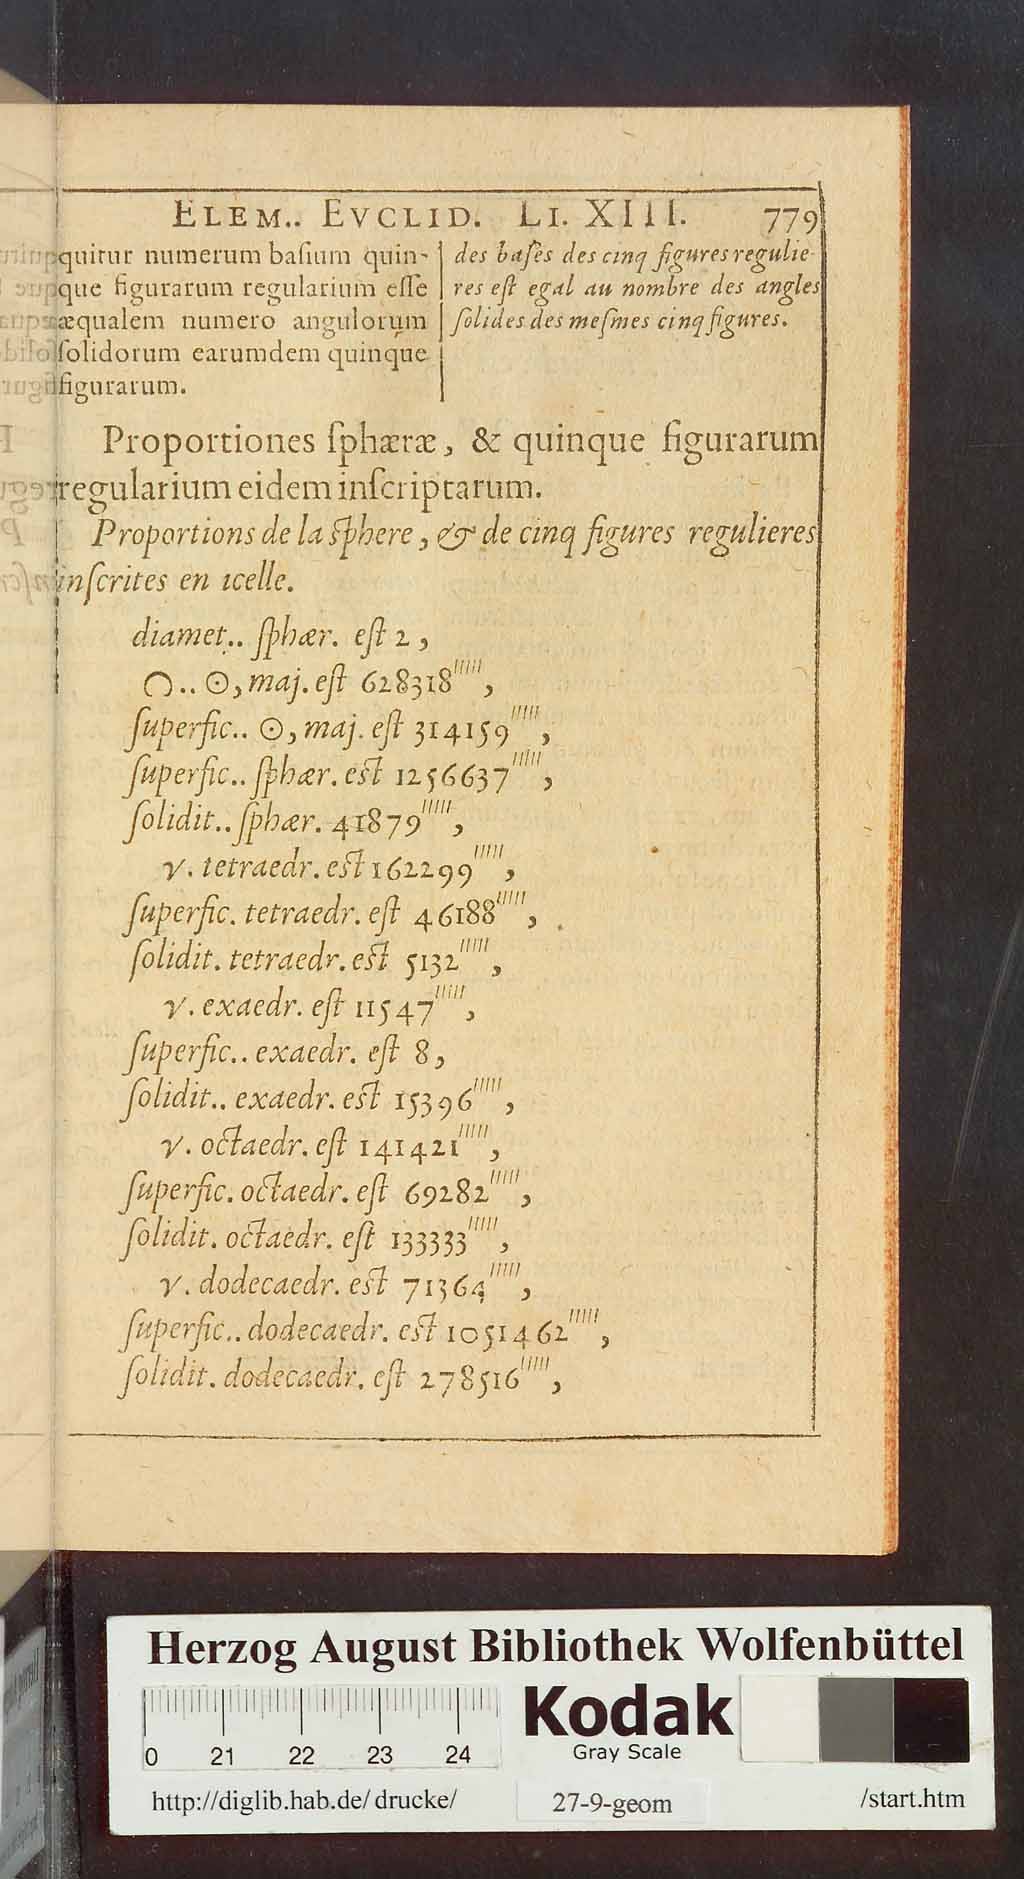 ELEM.. EVCLID. LI. XIII. 779
quitur numerum baſium quin-
que figurarum regularium eſſe
æqualem numero angulorum
ſolidorum earumdem quinque
figurarum.
des baſes des cinq figures regulie-
res eſt egal au nombre des angles
ſolides des meſmes cinq figures.
Proportiones ſphæræ, & quinque figurarum
regularium eidem inſcriptarum.
Proportions de la ſphere, & de cinq figures regulieres
inſcrites en icelle.
diamet.. ſphær. eſt 2,
◠.. ⊙, maj. eſt 628318''''',
ſuperfic.. ⊙, maj. eſt 314159''''',
ſuperfic.. ſphær. eſt 1256637''''',
ſolidit.. ſphær. 41879''''',
γ. tetraedr. eſt 162299''''',
ſuperfic. tetraedr. eſt 46188''''',
ſolidit. tetraedr. eſt 5132''''',
γ. exaedr. eſt 11547''''',
ſuperfic.. exaedr. eſt 8,
ſolidit.. exaedr. eſt 15396''''',
γ. octaedr. eſt 141421''''',
ſuperfic. octaedr. eſt 69282''''',
ſolidit. octaedr. eſt 133333''''',
γ. dodecaedr. eſt 71364''''',
ſuperfic.. dodecaedr. eſt 1051462''''',
ſolidit. dodecaedr. eſt 278516''''',
Herzog August Bibliothek Wolfenbüttel
Kodak
Gray Scale
0 21 22 23 24
http://diglib.hab.de/ drucke/ 27-9-geom /start.htm